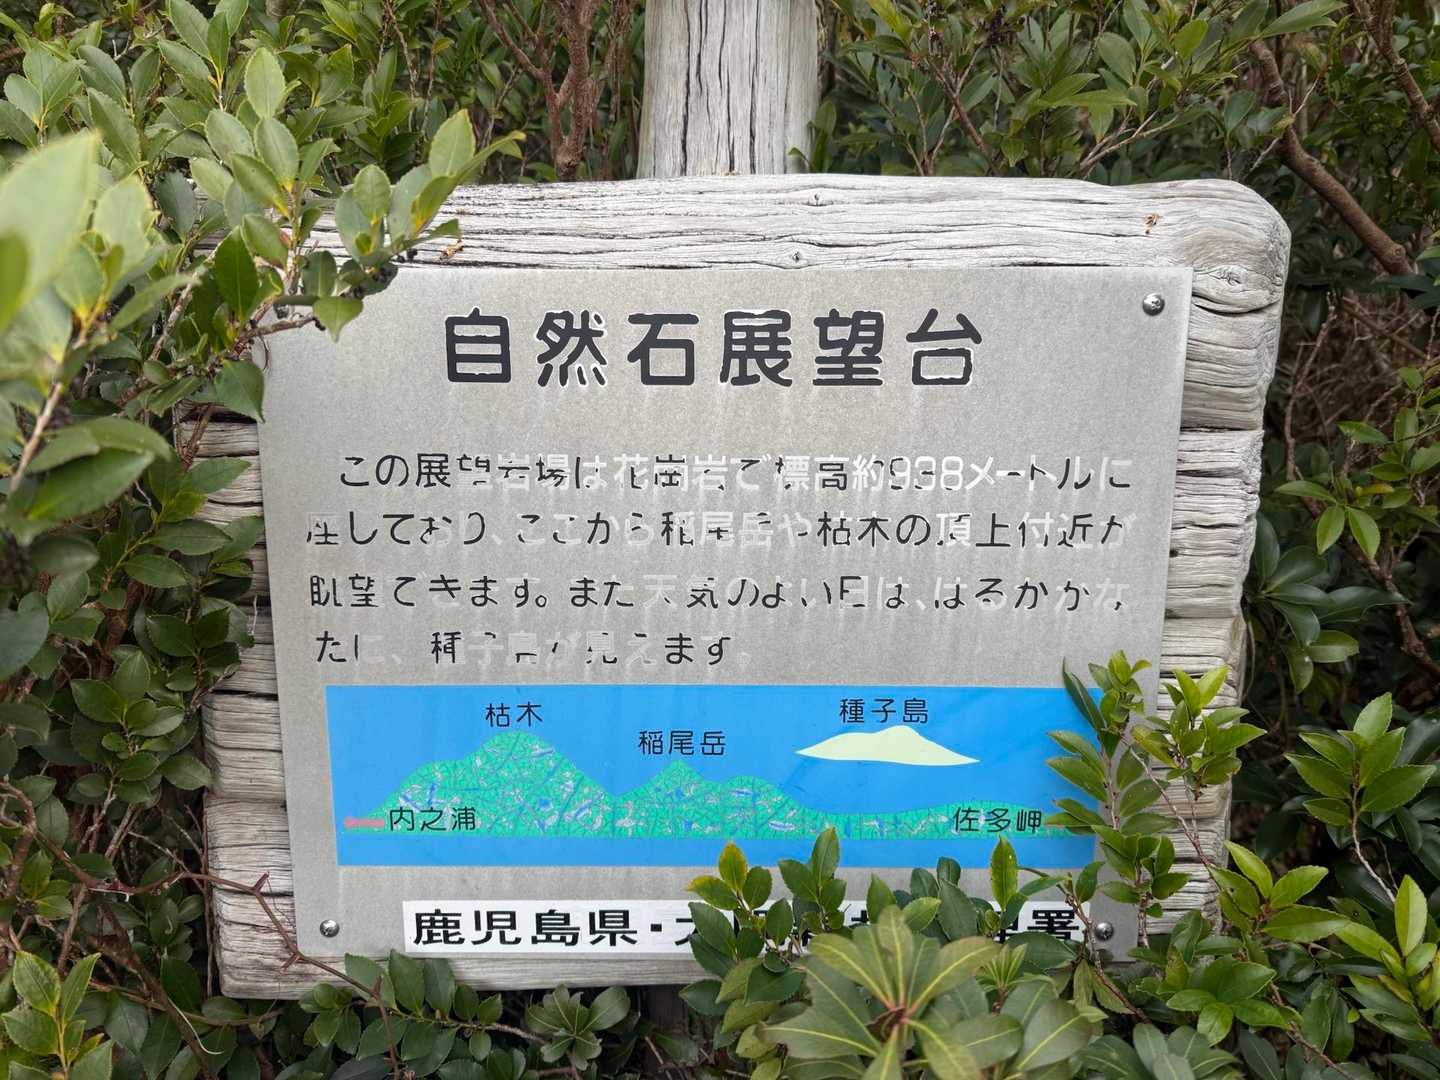 自然石展望台
この展望岩場は花崗岩で標高約938メートルに
座しており、ここから稲尾岳や枯木の頂上付近が
眺望できます。また天気のよい日は、はるかかな
たに、種子島が見えます。
枯木
種子島
稲尾岳
内之浦
佐多岬
鹿児島県・大隅森林管理署